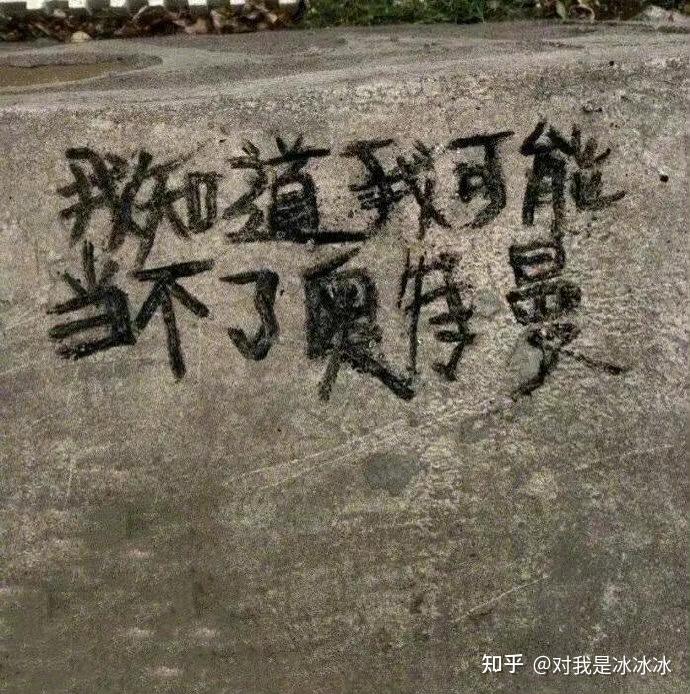 我知道我可能
当不了奥特曼
知乎 @对我是冰冰冰